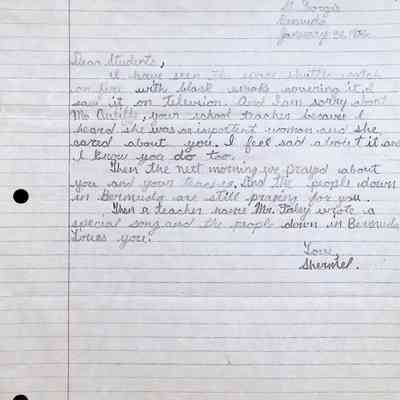 St. Georges
Bermuda
January 30, 1986
Dear Students,
I have seen the space shuttle catch
on fire with black smoke covering it. I
saw it on television. And I am sorry about
Mc Auliffe, your school teacher because I
heard she was a inportent woman and she
cared about you. I feel sad about it and
I know you do too.
Then the next morning we prayed about
you and your teacher. And the people down
in Bermuda are still praying for you.
Then a teacher name Mr. Foley wrote a
special song and the people down in Bermuda
Loves you.
Love,
Shermel.